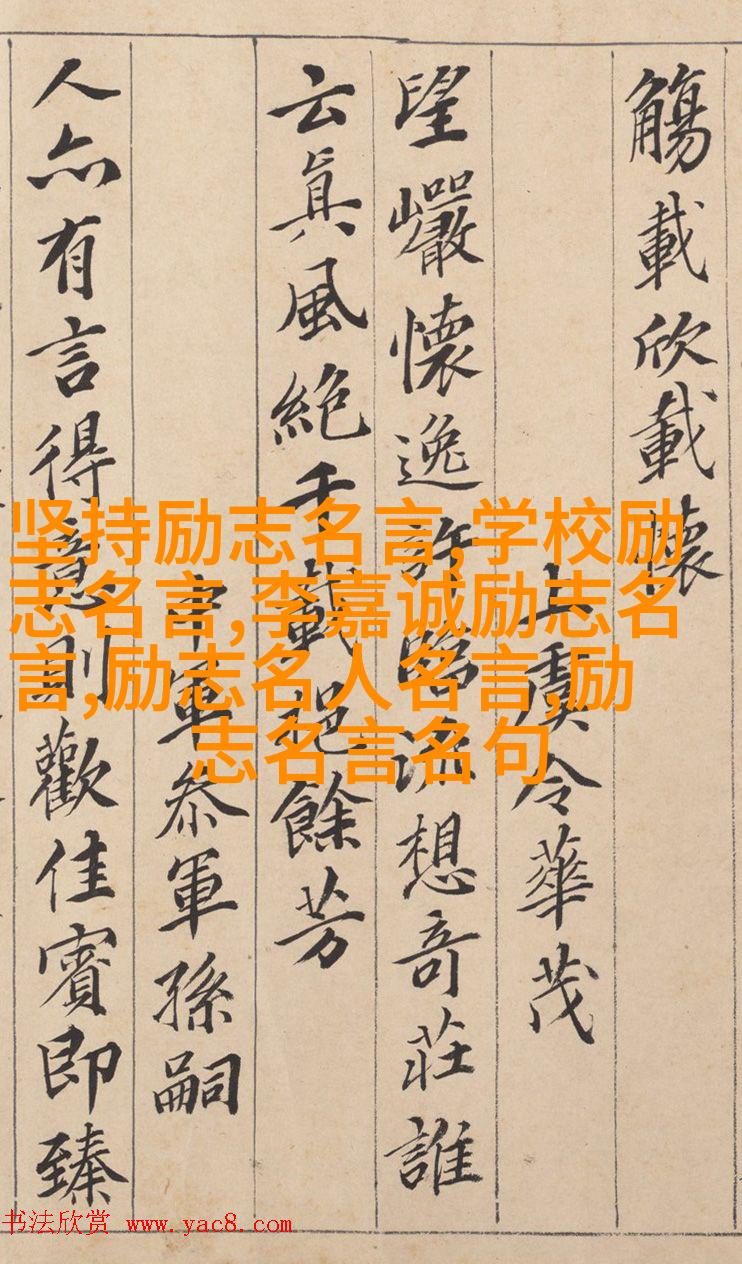 觴載欣載懷
上虞令華茂
望巖懷逸許臨流想奇莊誰
云眞風絶千載挹餘芳
中軍參軍孫嗣
人亦有言得意則歡佳賓即臻
坚持励志名言,学校励
志名言,李嘉诚励志名
言,励志名人名言,励
志名言名句
书法欣赏 www.yac8.com